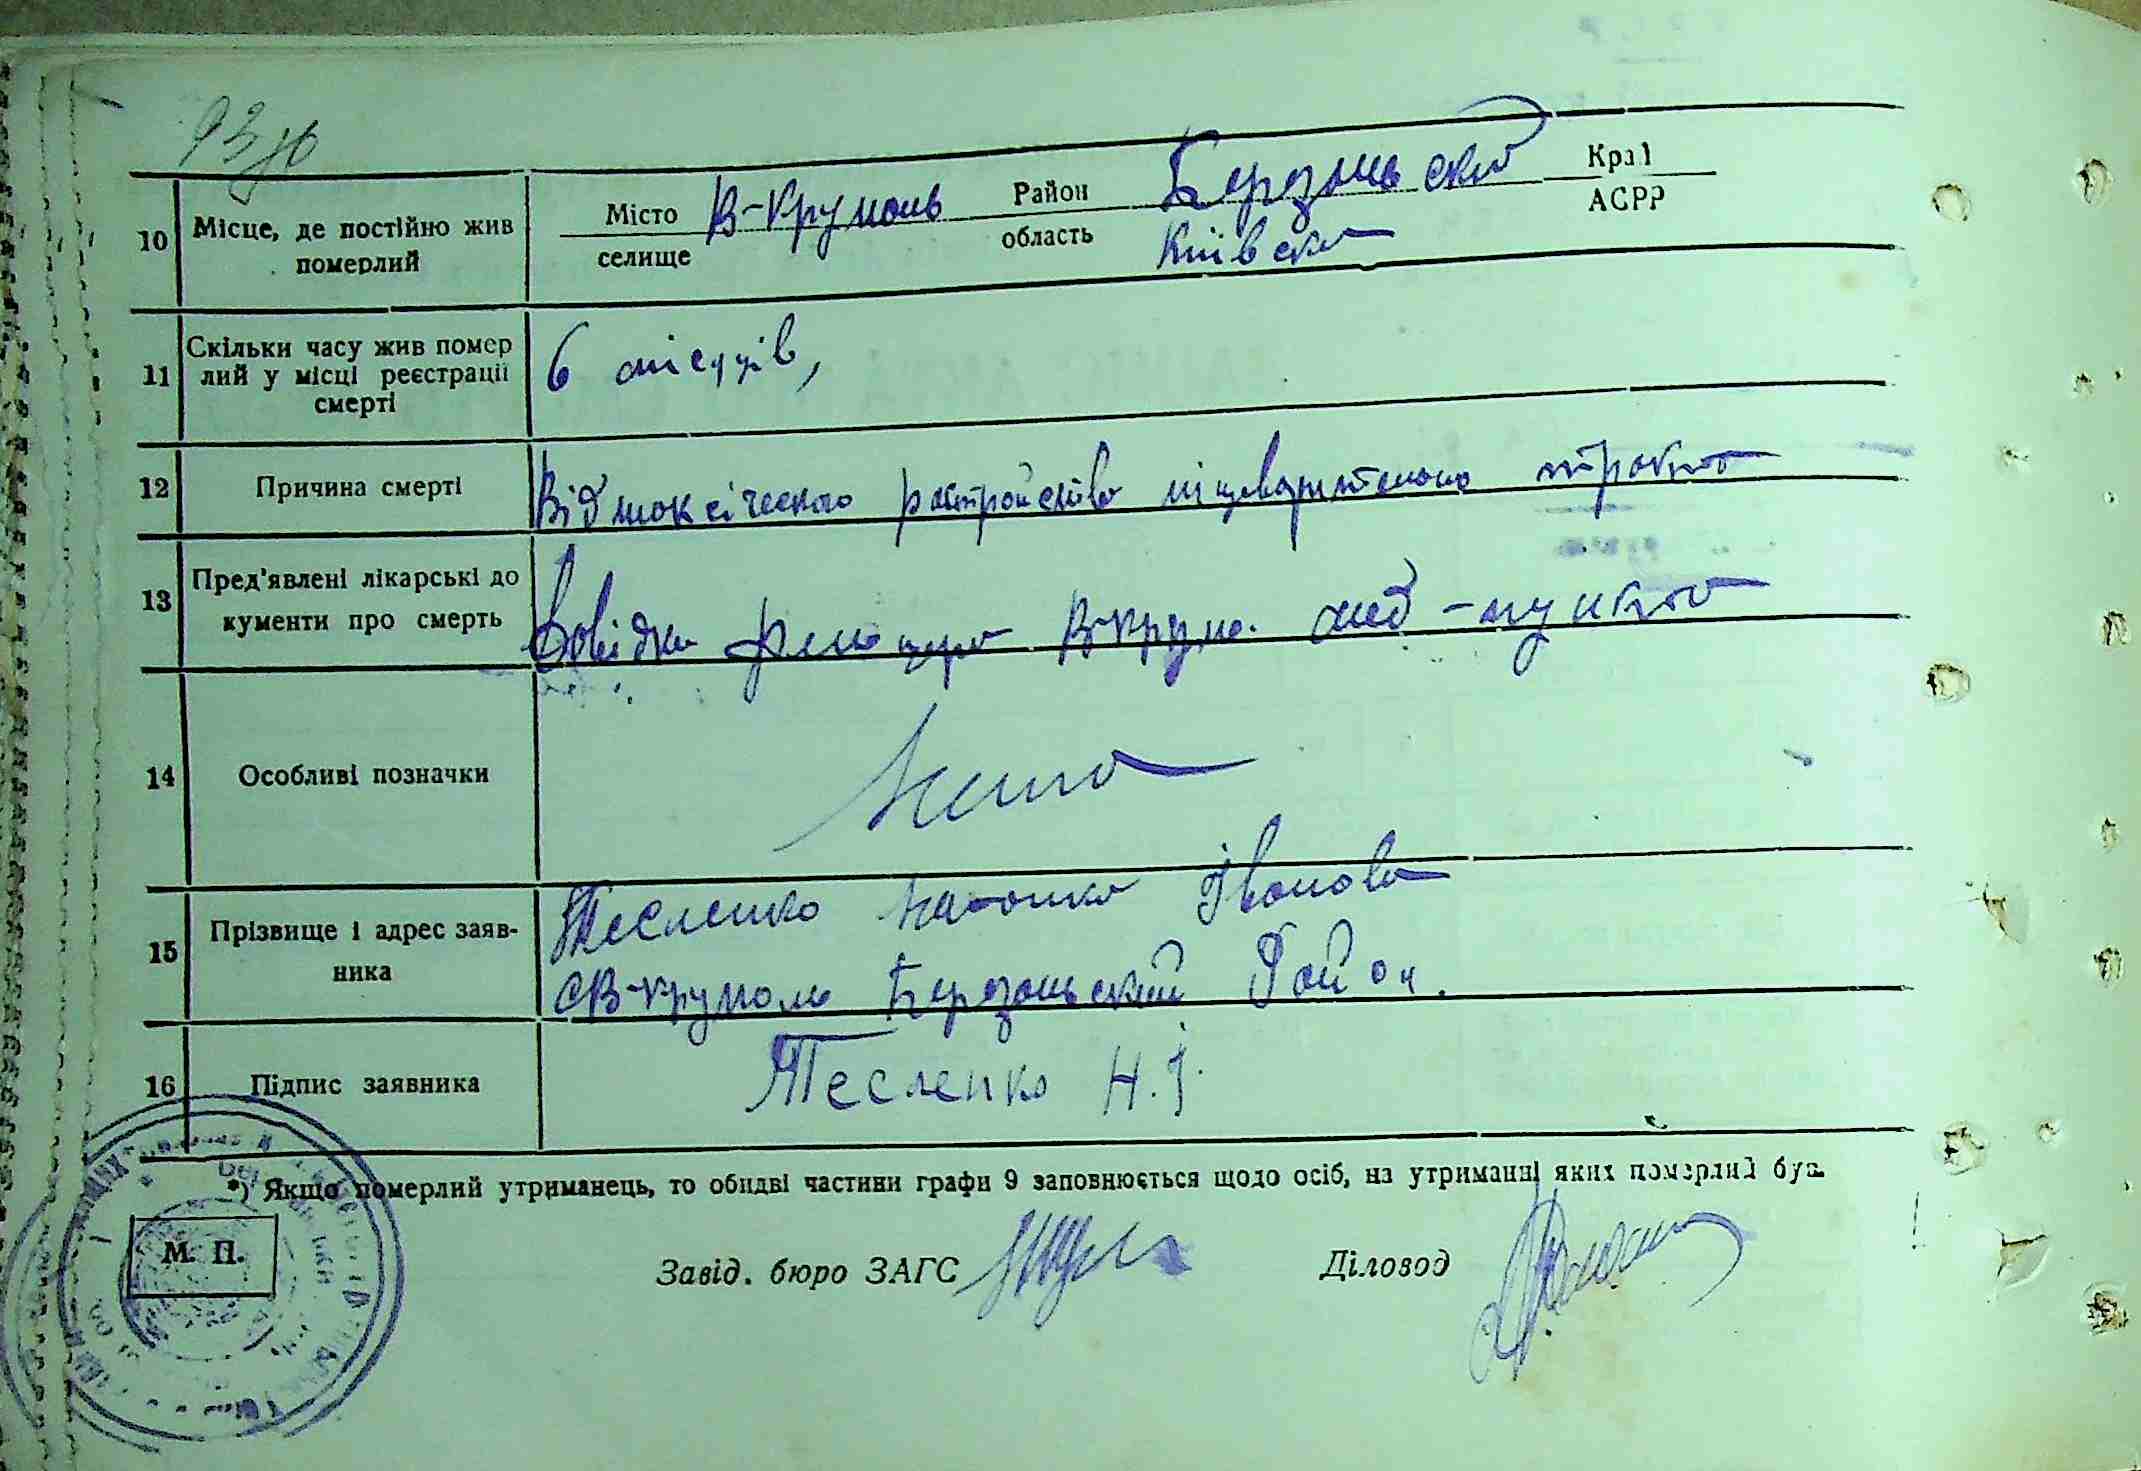 93зв
10 Місце, де постійно жив Місто В-Круполь Район Березанський Краї
померлий селище область Київска АСРР
11 Скільки часу жив помер 6 місяців,
лий у місці реєстрації
смерті
12 Причина смерті Від токсіческого растройства піщеварительного тракта
13 Пред'явлені лікарські до
кументи про смерть Довідка фельшера В-круп. мед-пункта
14 Особливі позначки Нема
15 Прізвище і адрес заяв- Тесленко Іванова
ника с В-круполь Березанський Район.
16 Підпис заявника Тесленко Н.І.
*) Якщо померлий утриманець, то обидві частини графи 9 заповнюється щодо осіб, на утриманні яких померлий був.
М. П.
Завід. бюро ЗАГС Діловод